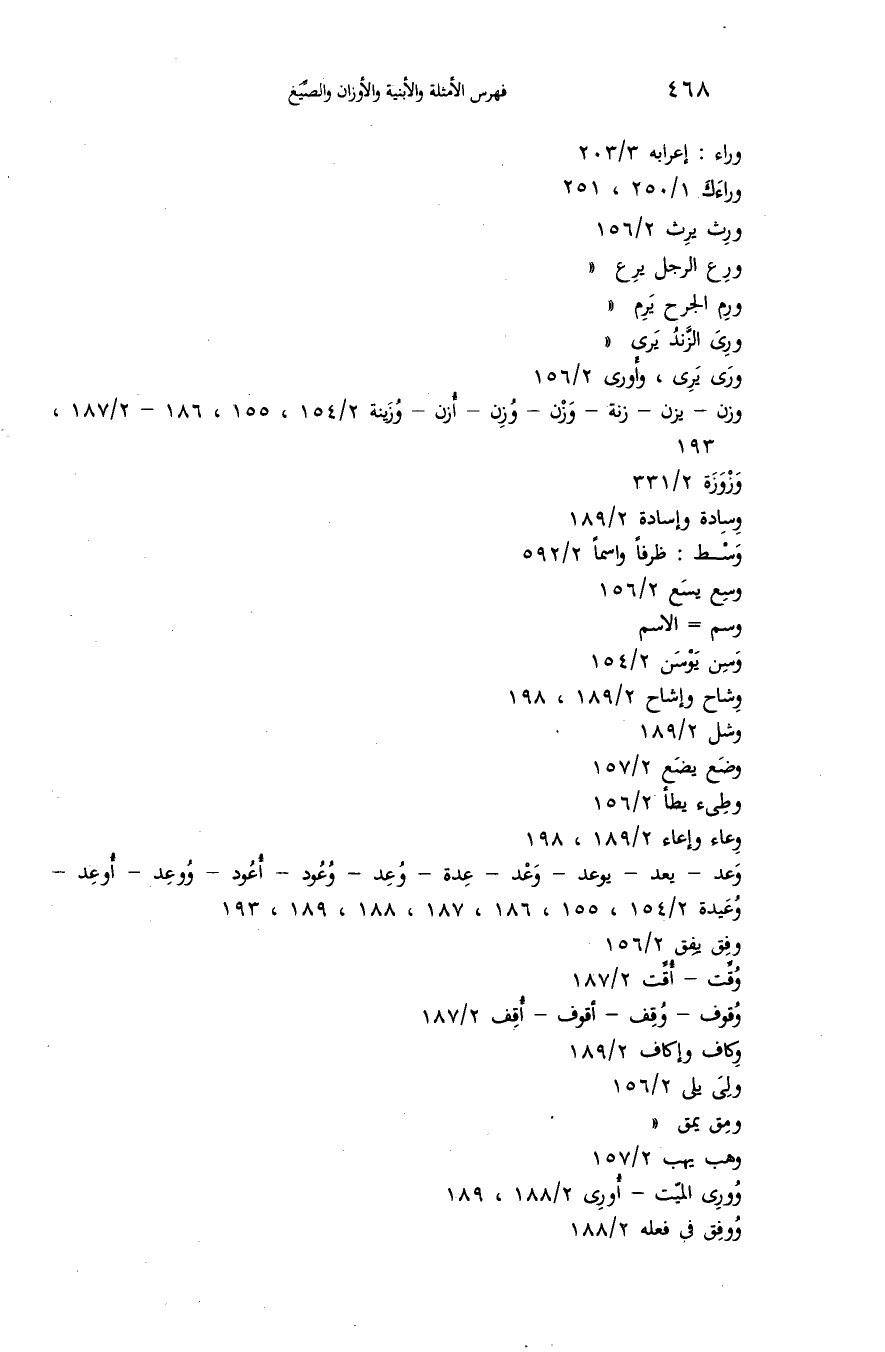 ٤٦٨ فهرس الأمثلة والأبنية والأوزان والصيّغ
وراء : إعرابه ٢٠٣/٣
وراءَكَ ٢٥٠/١ ، ٢٥١
ورِث يرِث ١٥٦/٢
ورِع الرجل يرِع «
ورِم الجرح يَرِم «
ورِىَ الزَّندُ يَرى «
ورَى يَرِى ، وأُورى ١٥٦/٢
وزن – يزن – زنة – وَزْن – وُزِن – أُزن – وُزَينة ١٥٤/٢ ، ١٥٥ ، ١٨٦ – ١٨٧/٢ ،
١٩٣
وَزْوَزَة ٣٣١/٢
وِسادة وإسادة ١٨٩/٢
وَسْـط : ظرفاً واسماً ٥٩٢/٢
وسِع يسَع ١٥٦/٢
وسم = الاسم
وَسِن يَوْسَن ١٥٤/٢
وِشاح وإشاح ١٨٩/٢ ، ١٩٨
وشل ١٨٩/٢
وضَع يضَع ١٥٧/٢
وطِىء يطأ ١٥٦/٢
وِعاء وإعاء ١٨٩/٢ ، ١٩٨
وَعد – يعد – يوعد – وَعْد – عِدة – وُعِد – وُعُود – أُعُود – وُوعِد – أُوعِد –
وُعَيدة ١٥٤/٢ ، ١٥٥ ، ١٨٦ ، ١٨٧ ، ١٨٨ ، ١٨٩ ، ١٩٣
وفِق يفِق ١٥٦/٢
وُقِّت – أُقِّت ١٨٧/٢
وُقوف – وُقِف – أقوف – أُقِف ١٨٧/٢
وِكاف وإكاف ١٨٩/٢
ولِىَ يلى ١٥٦/٢
ومِق يمق «
وهب يهب ١٥٧/٢
وُورِى الميّت – أُورِى ١٨٨/٢ ، ١٨٩
وُوفِق فى فعله ١٨٨/٢